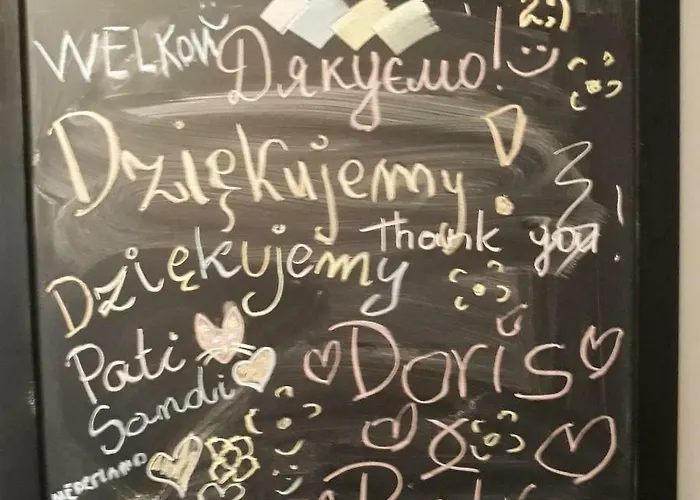 WELKOM
Дякуємо!
Dziękujemy!
thank you!
Dziękujemy
Pati
Doris
Sandi
NEDERLAND